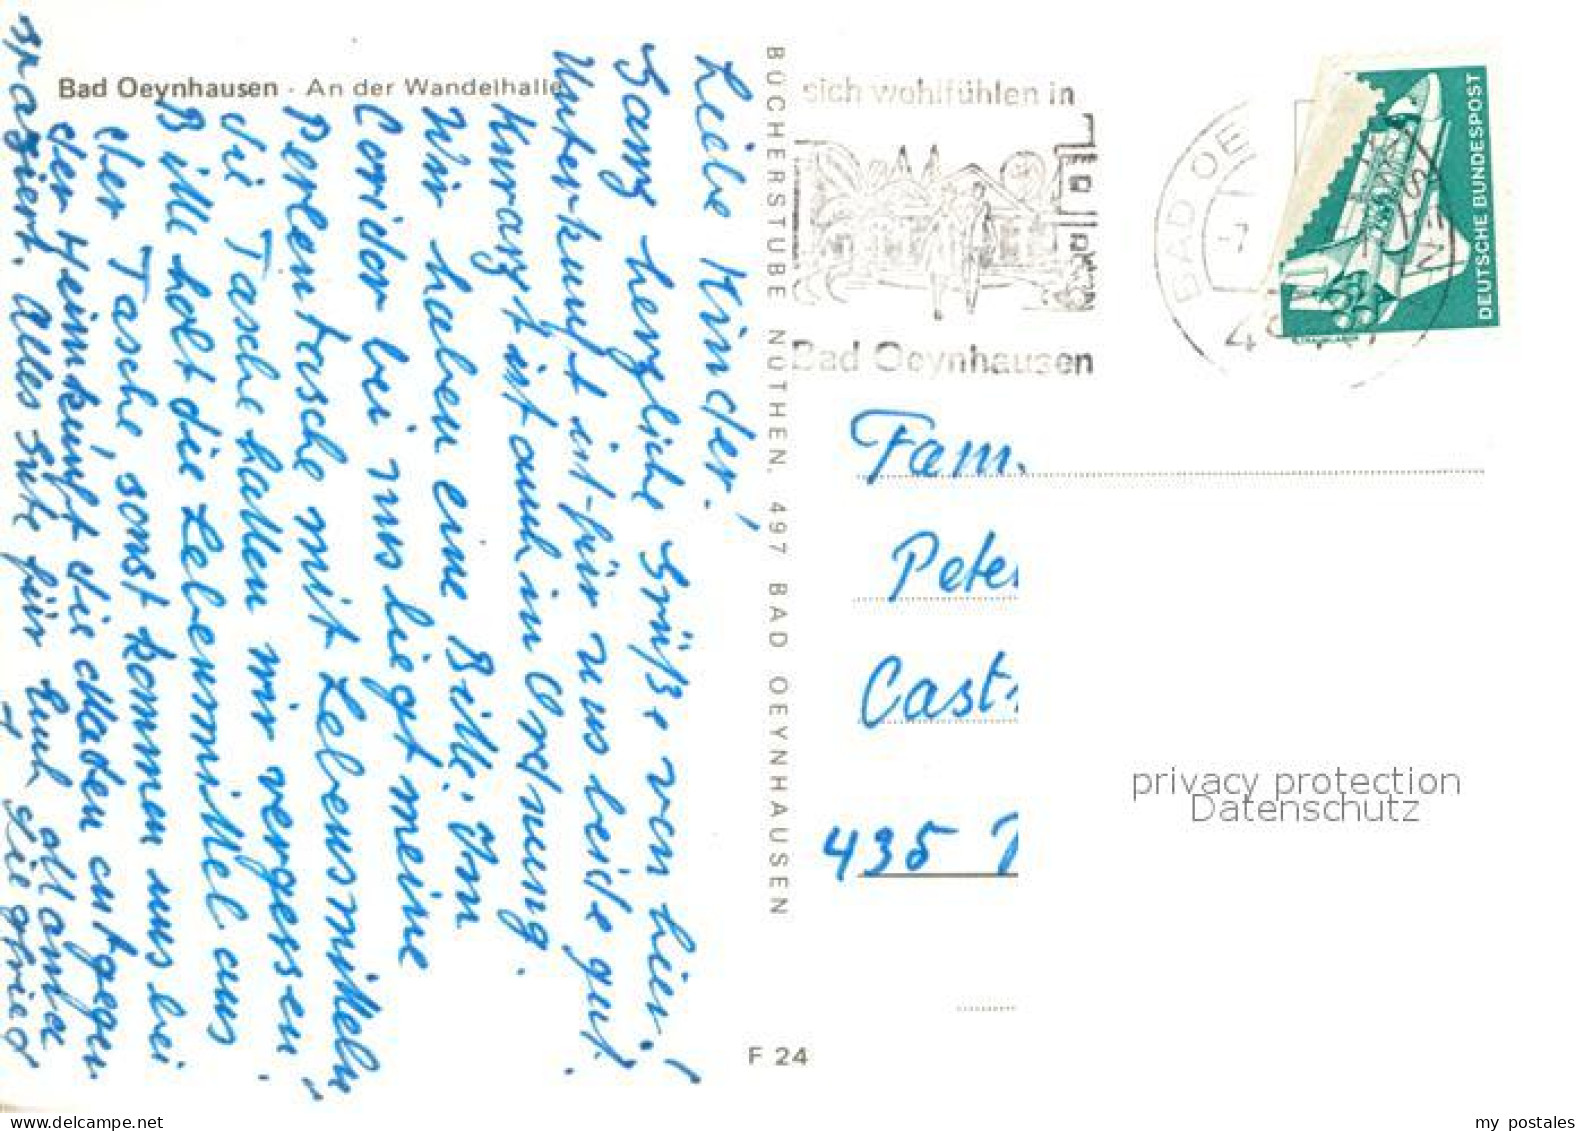 Bad Oeynhausen - An der Wandelhalle
Liebe Kinder!
Ganz herzliche Grüße von hier!
Unterkunft ist für uns beide gut.
Kurarzt ist auch in Ordnung.
Wir haben eine Bitte: Im
Corridor bei uns liegt meine
Perlentasche mit Lebensmitteln,
die Tasche hatten wir vergessen.
Bitte holt die Lebensmittel aus
der Tasche, sonst kommen uns bei
der Heimkunft die Maden entgegen
spaziert. Alles Gute für Euch Mama
+ Siegfried
BÜCHERSTUBE NÜTHEN, 497 BAD OEYNHAUSEN
F 24
sich wohlfühlen in
Bad Oeynhausen
BAD OE
-7.
DEUTSCHE BUNDESPOST
Fam.
Pete
Cast
435
privacy protection
Datenschutz
my postales